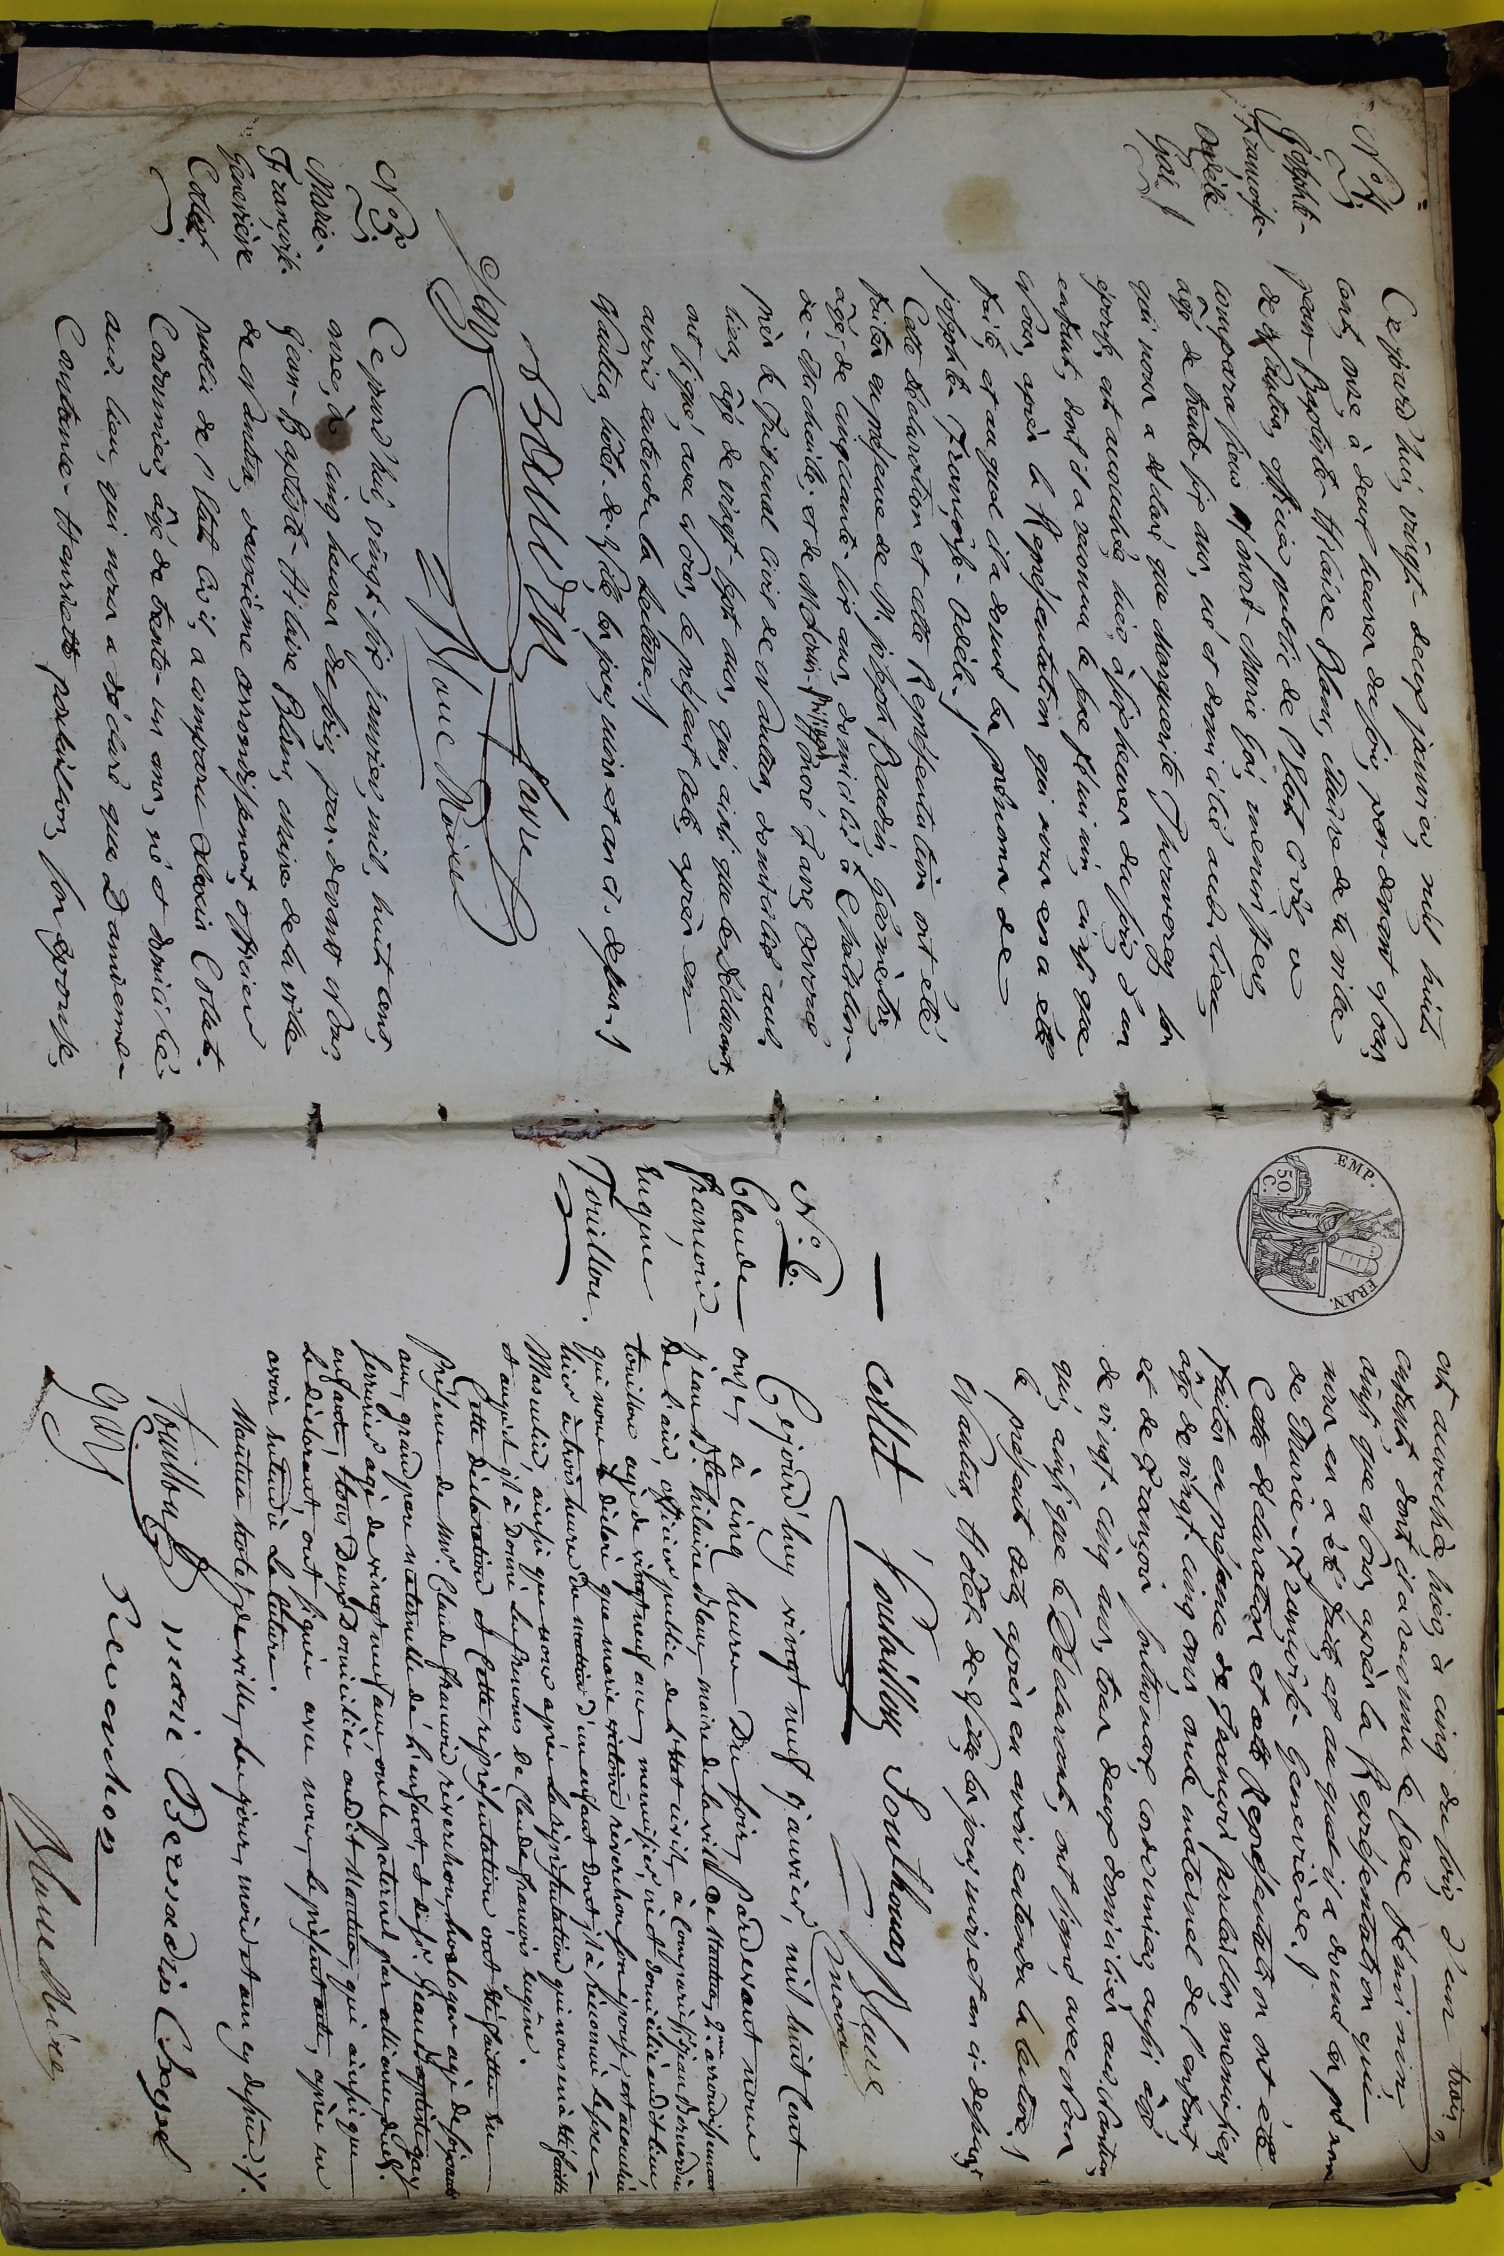 N° 4.
Josephte-
Françoise-
Adèle
Gai
Ce jourd'hui, vingt-deux janvier, mil huit
cent onze à deux heures de soir, par devant Nous
jean-Baptiste-Hilaire Blanc, Maire de la ville
de Nantua, officier public de l'état civil, a
comparu sieur mort-Marie Gai, menuisier,
âgé de trente six ans, né et domicilié audit lieu
qui nous a déclaré que Marguerite Thouverey son
épouse, est accouchée hier, à six heures du soir, d'un
enfant, dont il a reconnu le sexe féminin, ainsi que
Nous, après la Représentation qui nous en a été
faite, et auquel il a donné les prénoms de
josephte-Françoise-Adèle.
Cette déclaration et cette Représentation ont été
faites en présence de M. joseph Baudin, géomètre,
âgé de cinquante-six ans, domicilié à Chatillon
de-Michaille, et de Maturin-philippe honoré Favre avoué
près le Tribunal civil de Nantua, domicilié audit
lieu, âgé de vingt-sept ans, qui, ainsi que le déclarant,
ont signé, avec Nous, le présent acte, après en
avoir entendu la lecture.
Nantua, hôtel-de-Ville, les jour, mois et an ci-dessus.
BAUDIN favre
Gay
Blanc Maire
N° 5.
Marie-
Françoise-
Genevieve
Collet.
Ce jourd'hui, vingt-six janvier, mil huit cent
onze, à cinq heures de soir, par-devant Nous,
Jean-Baptiste-Hilaire Blanc, Maire de la ville
de Nantua, deuxième arrondissement, officier
public de l'état civil, a comparu Alexis Collet.
Cordonnier, âgé de trente-un ans, né et domicilié
audit lieu, qui nous a déclaré que
Constance-Henriette perbillon, son épouse,
trois
EMP. FRAN.
50. C.
est accouchée, hier, à cinq du soir, d'un
enfant, dont il a reconnu le sexe féminin,
ainsi que Nous, après la Représentation qui
nous en a été faite et auquel il a donné les prénoms
de Marie-Françoise-Genevieve.
Cette déclaration et cette Représentation ont été
faites en présence de François perbillon, menuisier,
âgé de vingt cinq ans, oncle maternel de l'enfant,
et de François fouthonax, cordonnier, aussi âgé
de vingt-cinq ans, tous deux domiciliés audit Nantua,
qui, ainsi que le Déclarant, ont signé, avec Nous
le présent acte, après en avoir entendu la lecture.
Nantua, Hôtel-de-Ville, les jour, mois et an ci-dessus.
collet Southonax Blanc
maire
N° 6.
Claude
francois
Eugene
Touillon.
Cejourd'huy vingt neuf janvier, mil huit Cent
onze, à cinq heures Du soir, pardevant nous
jean Bte hilaire Blanc, maire de la ville de Nantua, 2me arrondissement
De l'ain, officier public de l'état civil, à Comparu jean Bernardin
touillon agé de vingt neuf ans, menuisier, né et domicilié audit lieu,
qui nous à déclaré que marie victoire réverchon son épouse, est accouchée
hier à trois heures Du matin D'un enfant dont il à Reconnu le sexe
Masculin, ainsi que nous après la représentation qui nous en à été faitte
et auquel il à Donné les prénoms de Claude francois eugène.
Cette déclaration et Cette représentation ont été faittes en
Présence de Mr. Claude francois réverchon, horloger agé de soixante
ans, grand pere maternelle dé l'enfant, et de sr. Jean Baptiste gay
serrurier agé de vingt neuf ans, oncle paternel par alliance dudt.
enfant, tous Deux Domiciliés audit Nantua, qui ainsi que
Le déclarant, ont signés avec nous, le présent acte, après en
avoir entendu La lecture.
Nantua hotel de ville, les jour, mois et an cy dessus.
touillon marie Bernadin Clogel
Gay Reverchon
Blanc Maire